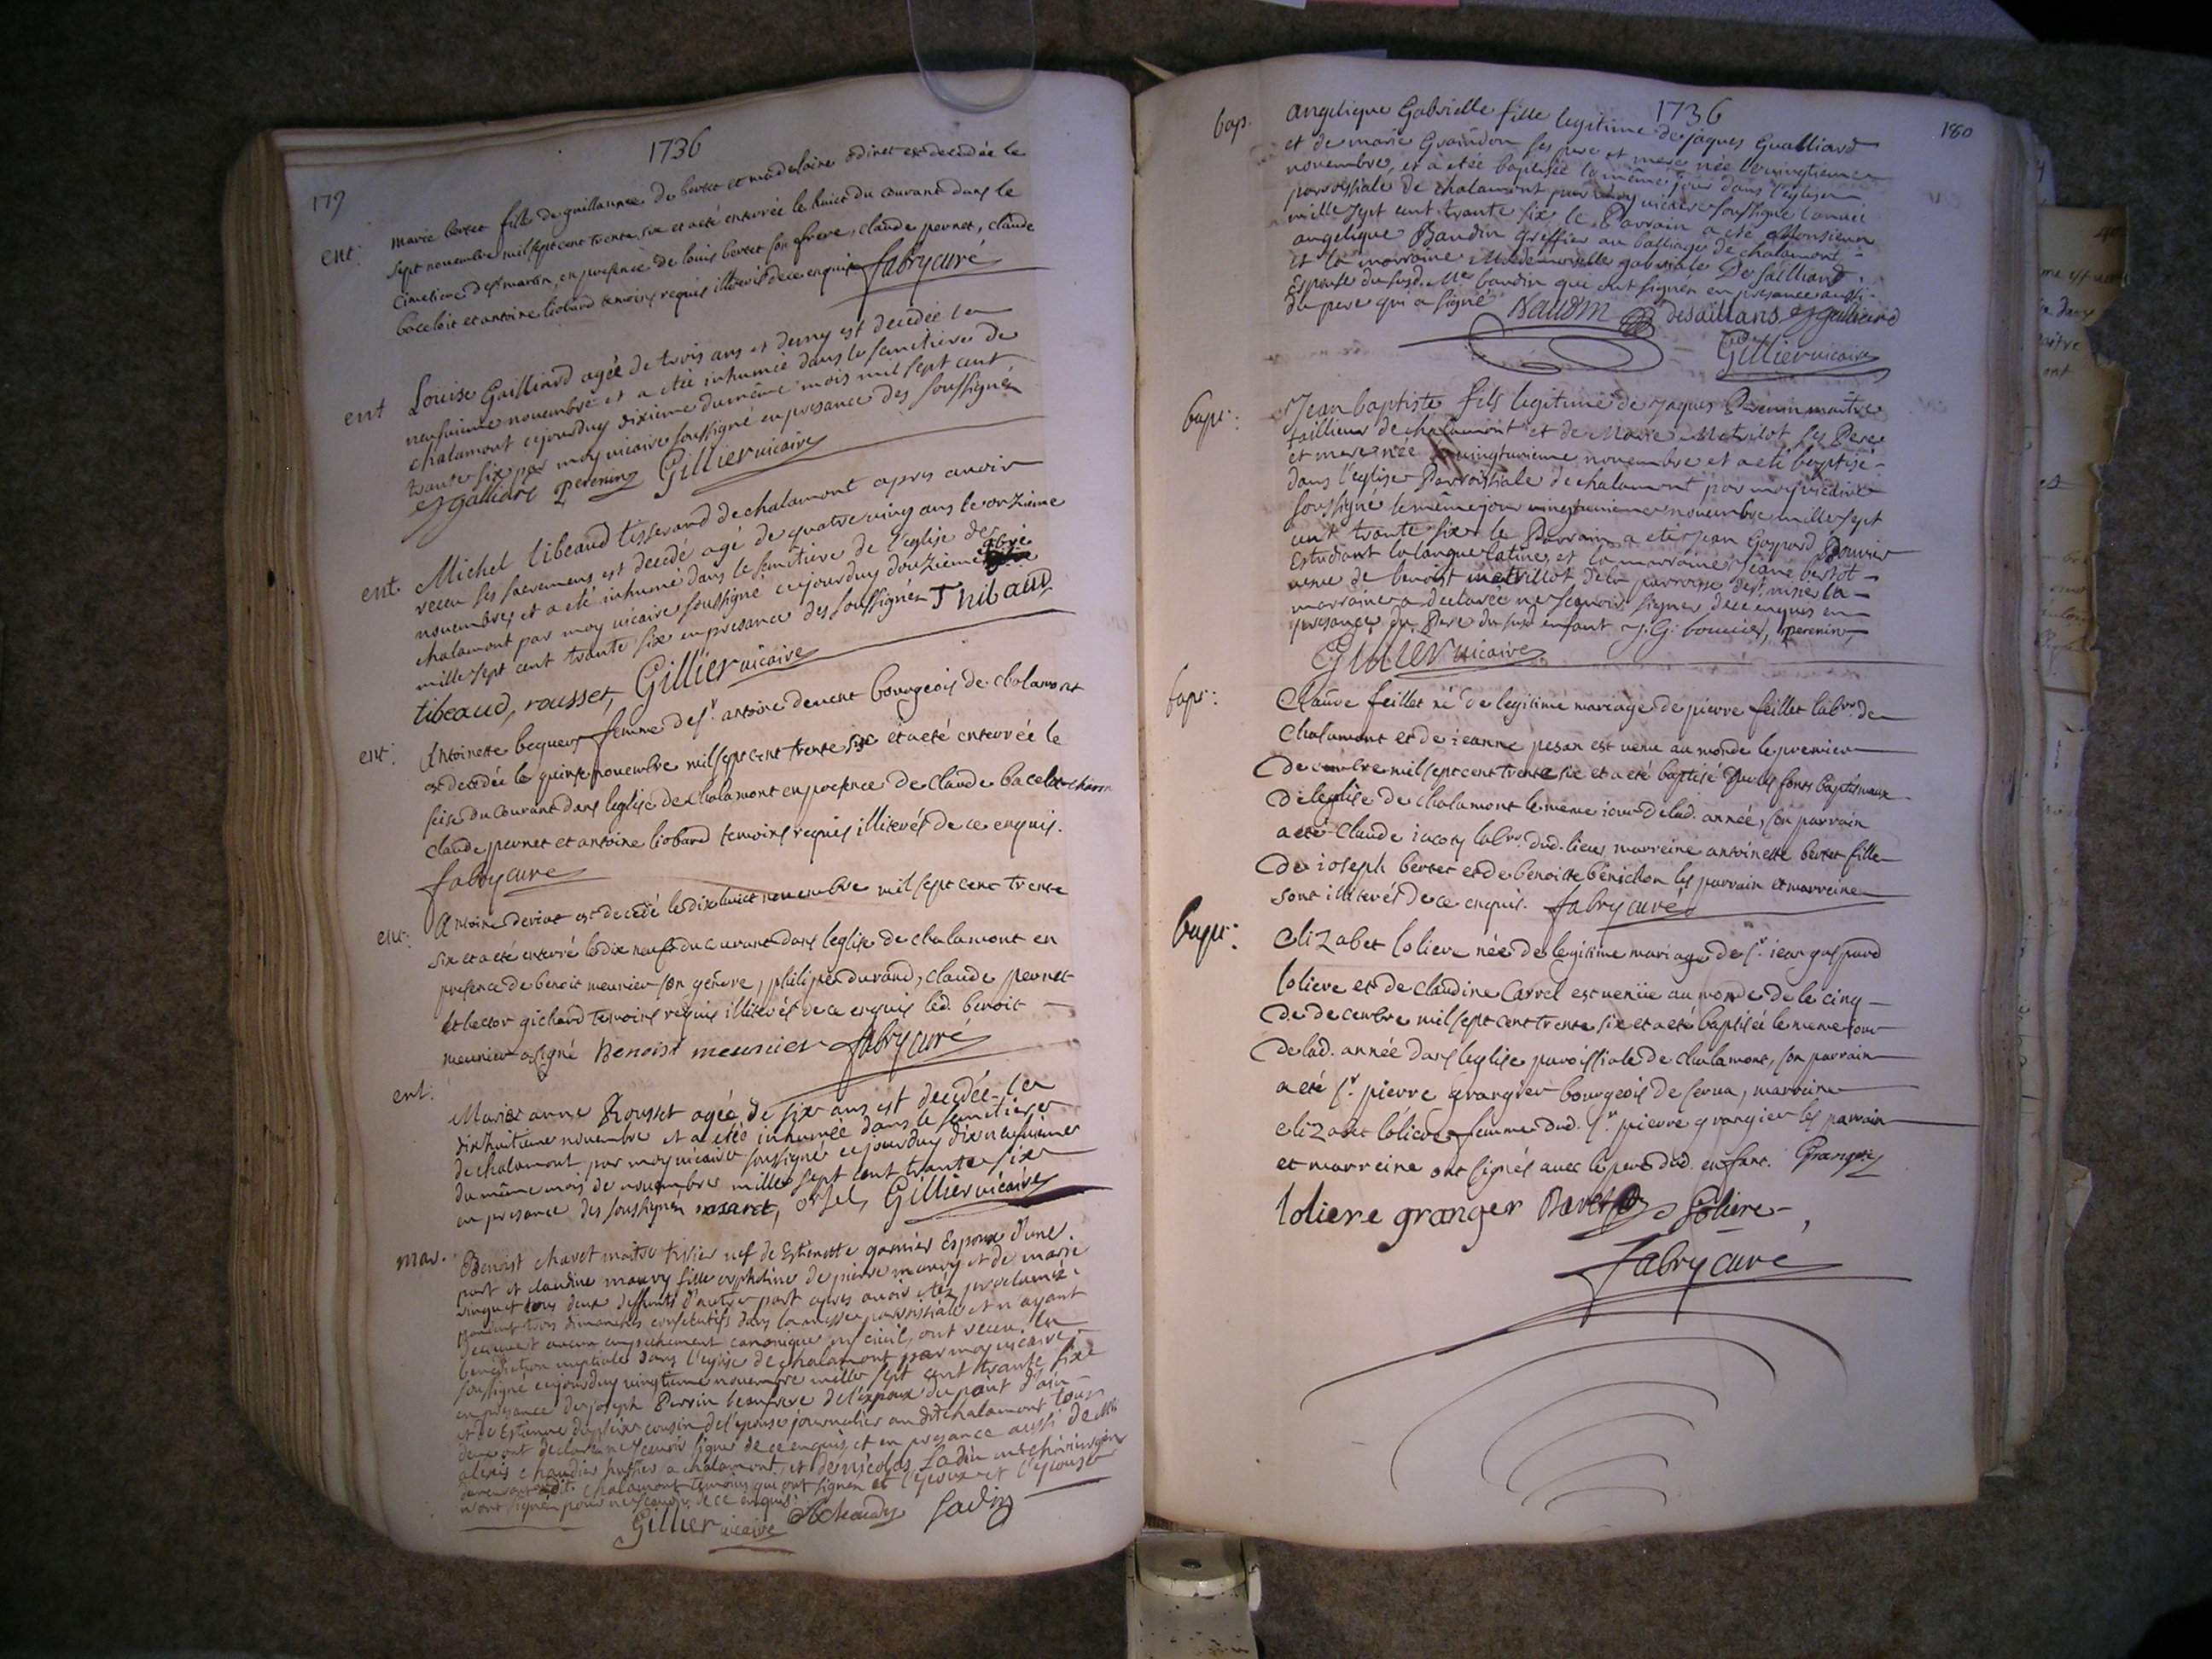 1736
179
ent:
marie bertet fille de guillaume de bertet et madelaine odinet est decedée le
sept novembre mil sept cent trente six et a eté enterrée le huict du courant dans le
cimetiere de st martin, en presence de louis bertet son frere, claude pernet, claude
bacelot et antoine liobard temoins requis illiterés de ce enquis fabry curé
ent
Louise Gailliard agée de trois ans et demy est decedée le
neufvieme novembre et a etée inhumée dans le semetiere de
chalamont cejourduy dixieme du même mois mil sept cent
trante six par moy vicaire soussigné en presance des soussignés
galliard perenin Gillier vicaire
ent.
Michel tibeaud tisserand de chalamont apres avoir
receu ses sacremens est decedé agé de quatre ving ans le onzieme
novembre, et a eté inhumé dans le semêtiere de l'eglise de
chalamont par moy vicaire soussigné cejourduy douzieme
mille sept cent trante six en presance des soussignés Thibaud
tibeaud, rousset, Gillier vicaire
ent:
Antoinette femme de sr. antoine bourgeois de chalamont
est decedée le quinse novembre mil sept cent trente six et a eté enterrée le
seise du courant dans leglise de chalamont en presence de claude bacelot
claude pernet et antoine liobard temoins requis illiterés de ce enquis.
fabry curé
ent:
Antoine est decedé le dix huict novembre mil sept cent trente
six et a eté enterré le dix neuf du courant dans leglise de chalamont en
presence de benoit meunier son gendre, philipe durand, claude pernet
et hector gichard temoins requis illiterés de ce enquis led. benoit
meunier a signé Benoist meunier fabry curé
ent:
Marie anne Rousset agée de six ans est decedée le
dix huitieme novembre et a etée inhumée dans le semetiere
de chalamont par moy vicaire soussigné cejourduy dix neufvieme
du même mois de novembre mille sept cent trante six
en presance des soussignés Gillier vicaire
mar.
Benoist chavet maitre tixier vef de Estienette garnier Espoux d'une
part et claudine maury fille orpheline de pierre maury et de marie
tous deux deffunts d'autre part apres avoir etéz proclaméz
pendant trois dimanches consecutifs dans la messe parroissiale et n'ayant
decouvert aucun empechement canonique ny civil, ont receu la
benediction nuptiale dans l'eglise de chalamont par moy vicaire
soussigné cejourduy vingtieme novembre mille sept cent trante six
en presance de joseph Perrin beaufrere de l'expoux du pont d'ain
et de Estienne cousin de l'epouse journalier audit chalamont tous
deux ont declaré ne scavoir signer de ce enquis, et en presance aussi de
alexis a chalamont, et de nicolas
chalamont temoins qui ont signer et l'epoux et l'epouse
n'ont signer pour ne scavoir de ce enquis.
Gillier vicaire
1736
180
bap.
angelique Gabrielle fille legitime de jaques Gualliard
et de marie Graindon ses pere et mere née le vingtieme
novembre, et a etée baptisée le même jour dans l'eglise
parroissiale de chalamont par moy vicaire soussigné l'année
mille sept cent trante six le Parrain a eté Monsieur
angelique Baudin Greffier au balliage de chalamont
et la marraine Mademoiselle gabriele De Sailliard
Espouse du susd. Mr. baudin qui ont signer en presance aussi
du pere qui a signé Baudin desaillans galliard
Gillier vicaire
bapt:
Jean baptiste fils legitime de Jaques Perenin maître
taillieur de chalamont et de Marie Metrilot ses Pere
et mere née le vingtunieme novembre et a eté baptisé
dans l'eglise Parroissiale de chalamont par moy vicaire
soussigné le même jour vingtunieme novembre mille sept
cent trante six le Parrain a eté jean Gaspard Bouvier
Estudiant la langue latine, et la marraine jeane bertot
de benoist metrillot de la parroisse de
marraine a declarée ne scavoir signer de ce enquis en
presance du Pere du susd enfant J. G. bouvier, perenin
Gillier vicaire
bapt:
Claude feillet né de legitime mariage de pierre feillet labr. de
Chalamont et de jeanne pesan est venu au monde le premier
decembre mil sept cent trente six et a eté baptisé sur les fonts baptismaux
de leglise de chalamont le meme jour de lad. année, son parrain
a eté claude jacoty labr. dud. lieu, marreine antoinette bertet fille
de joseph bertet et de benoitte benichon les parrain et marreine
sont illiterés de ce enquis. fabry curé
bapt:
elizabet loliere née de legitime mariage de sr. jean gaspard
loliere et de claudine Carrel est venüe au monde le cinq
de decembre mil sept cent trente six et a eté baptisée le meme jour
de lad. année dans leglise paroissiale de chalamont, son parrain
a eté sr. pierre grangier bourgeois de, marreine
elizabet loliere femme dud. sr. pierre grangier les parrain
et marreine ont signés avec le pere dud. enfant. Granger
loliere granger Loliere
fabry curé